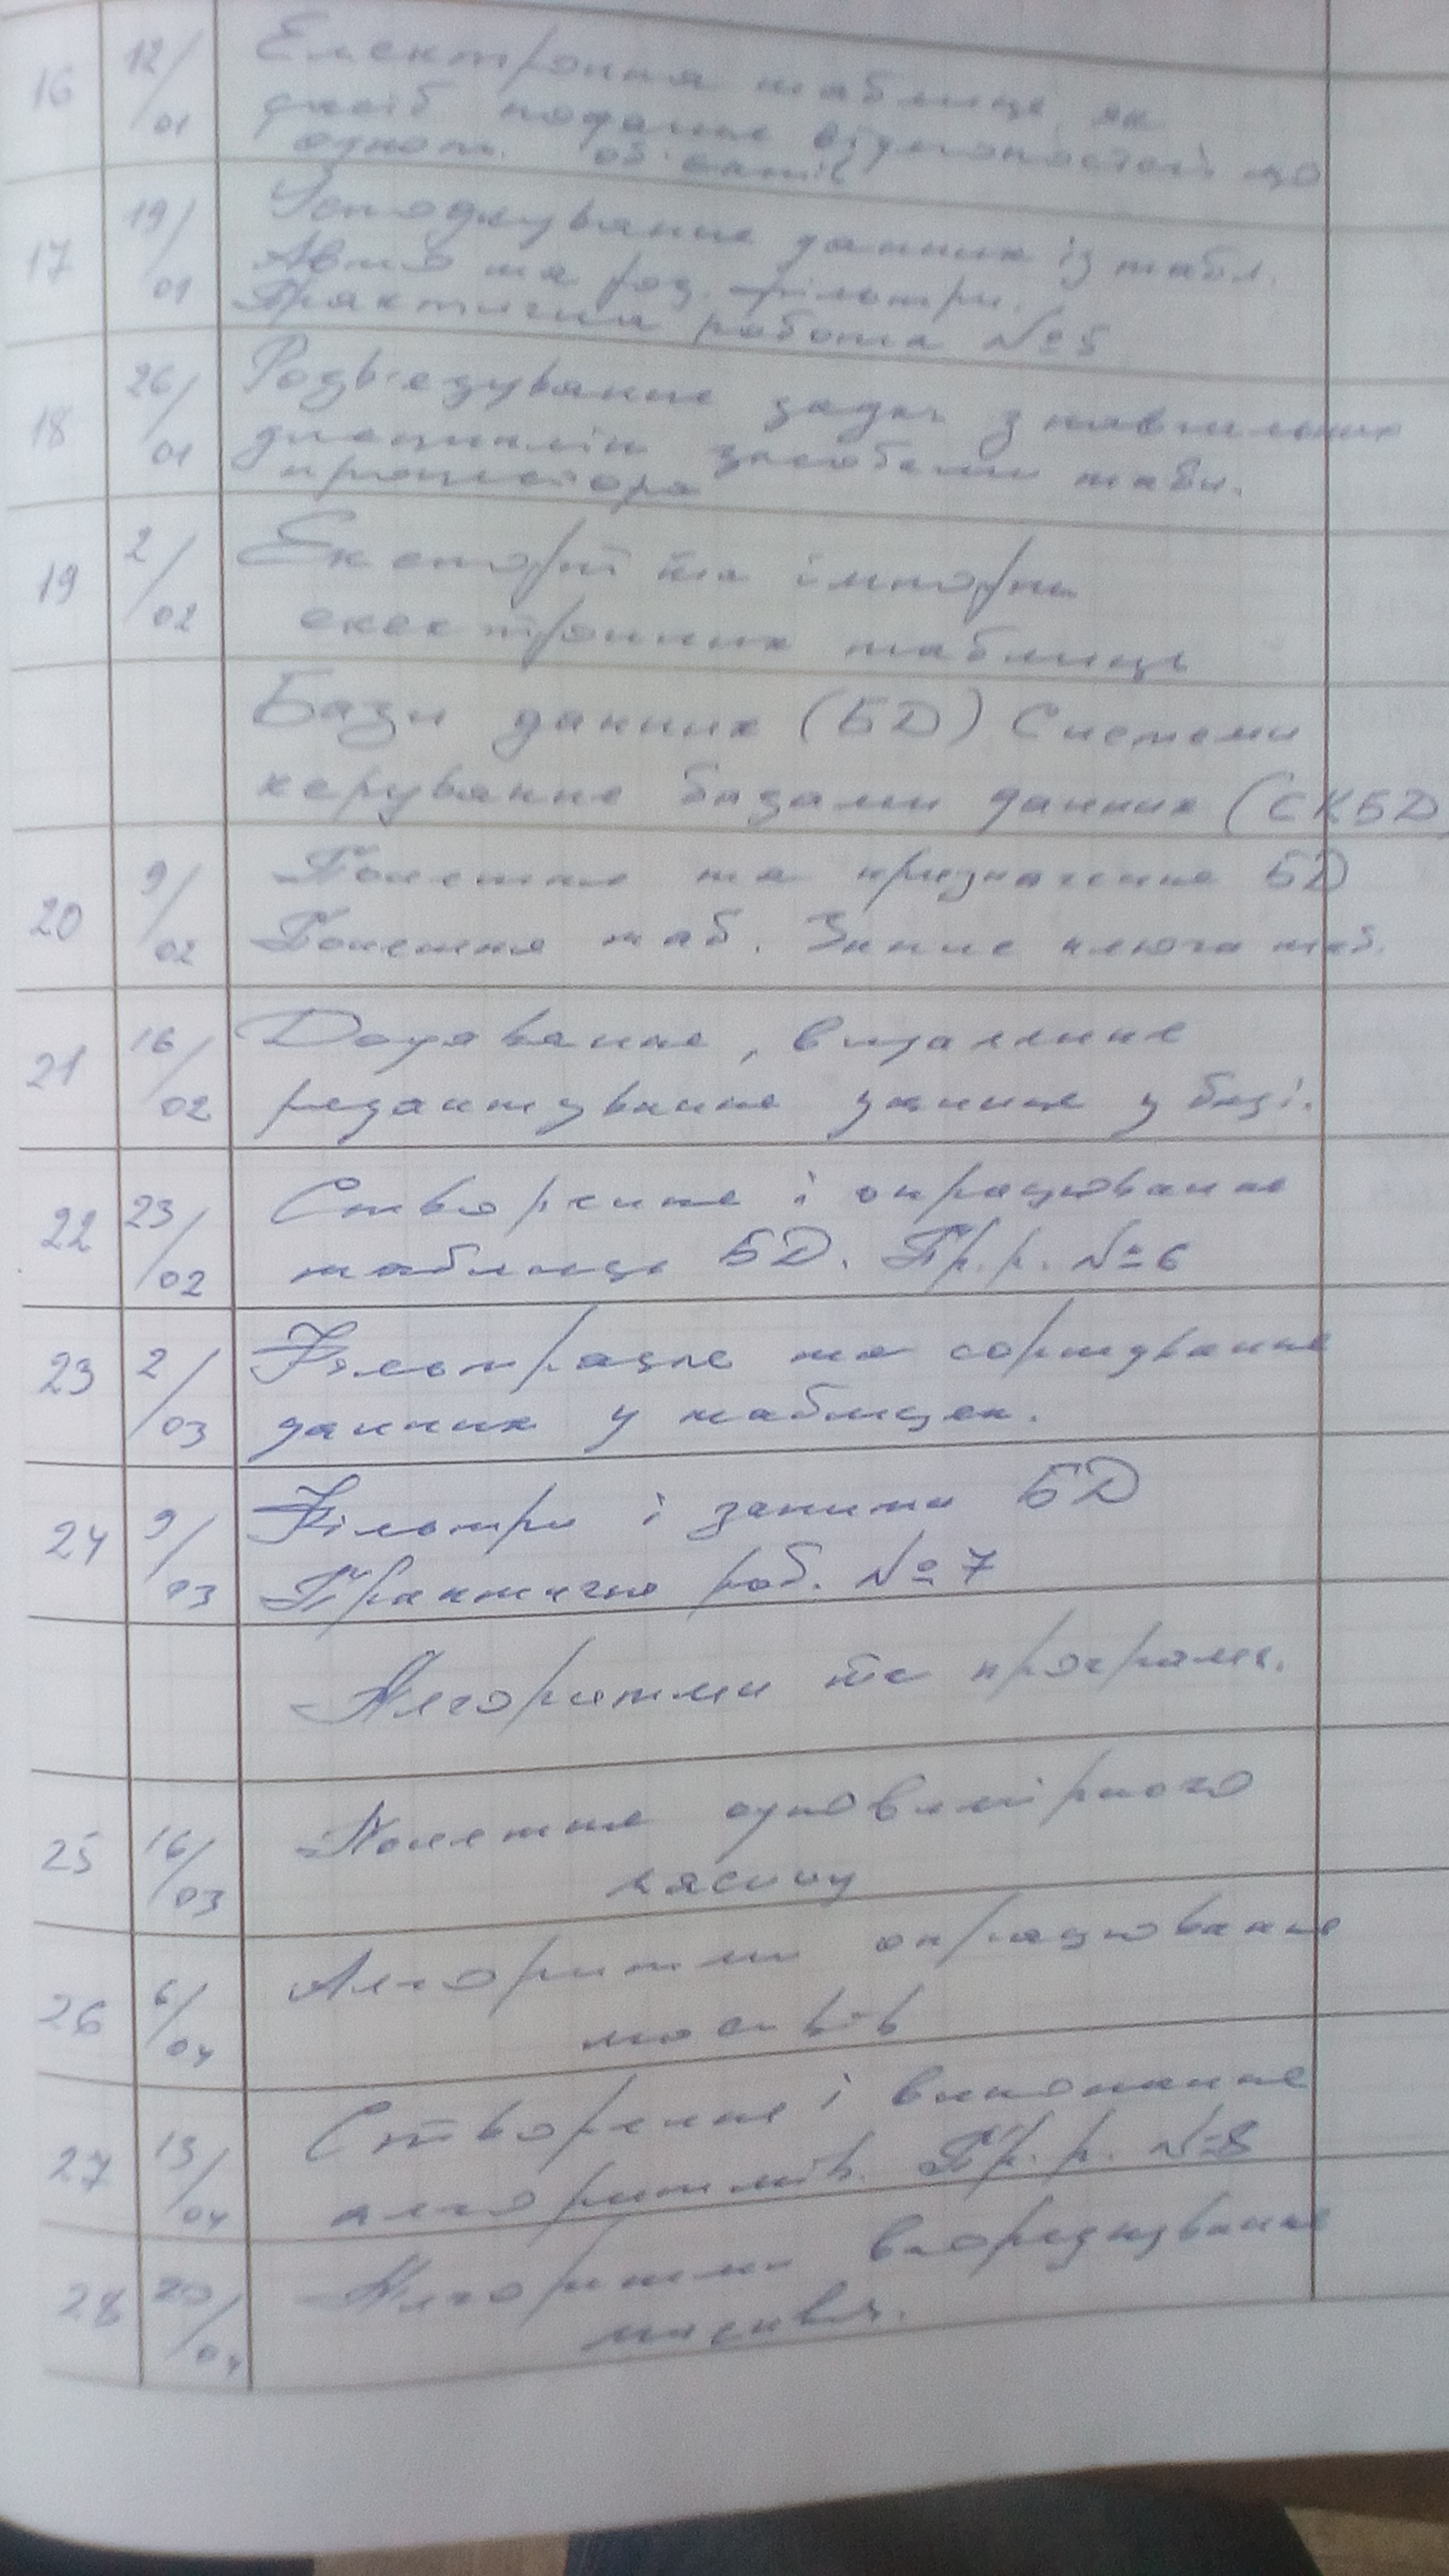 16 12/01 Електронна таблиця як
засіб подання відомостей що
однот. об'єктів
17 19/01 Упорядкування данних із табл.
Авто та роз. фільтри.
Практична робота №5
18 26/01 Розв'язування задач з навчальних
дисциплін засобами табл.
процесора
19 2/02 Експорт та імпорт
електронних таблиць
Бази данних (БД) Системи
керування базами данних (СКБД)
20 9/02 Поняття та призначення БД
Поняття таб. ключа таб.
21 16/02 Додавання, видалення
редагування у базі.
22 23/02 Створення і опрацювання
таблиць БД. Пр.р. №6
23 2/03 Фільтрація та сортування
данних у таблицях.
24 9/03 Фільтри і запити БД
Практична роб. №7
Алгоритми та програми.
25 16/03 Поняття одновимірного
масиву
26 6/04 Алгоритми опрацювання
масивів
27 13/04 Створення і виконання
алгоритмів. Пр.р. №8
28 20/04 Алгоритми впорядкування
масива.